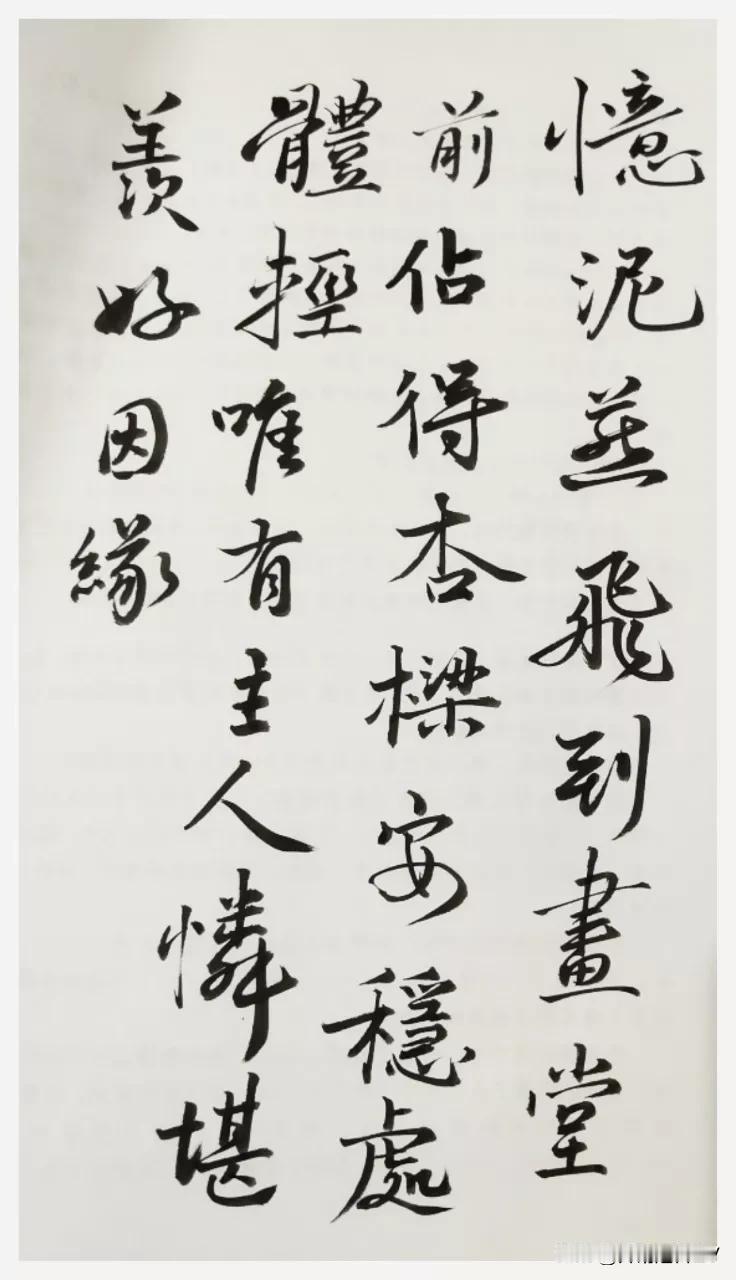 憶泥燕飛到畫堂
前佔得杏樑安穩處
體輕唯有主人憐堪
羨好因緣